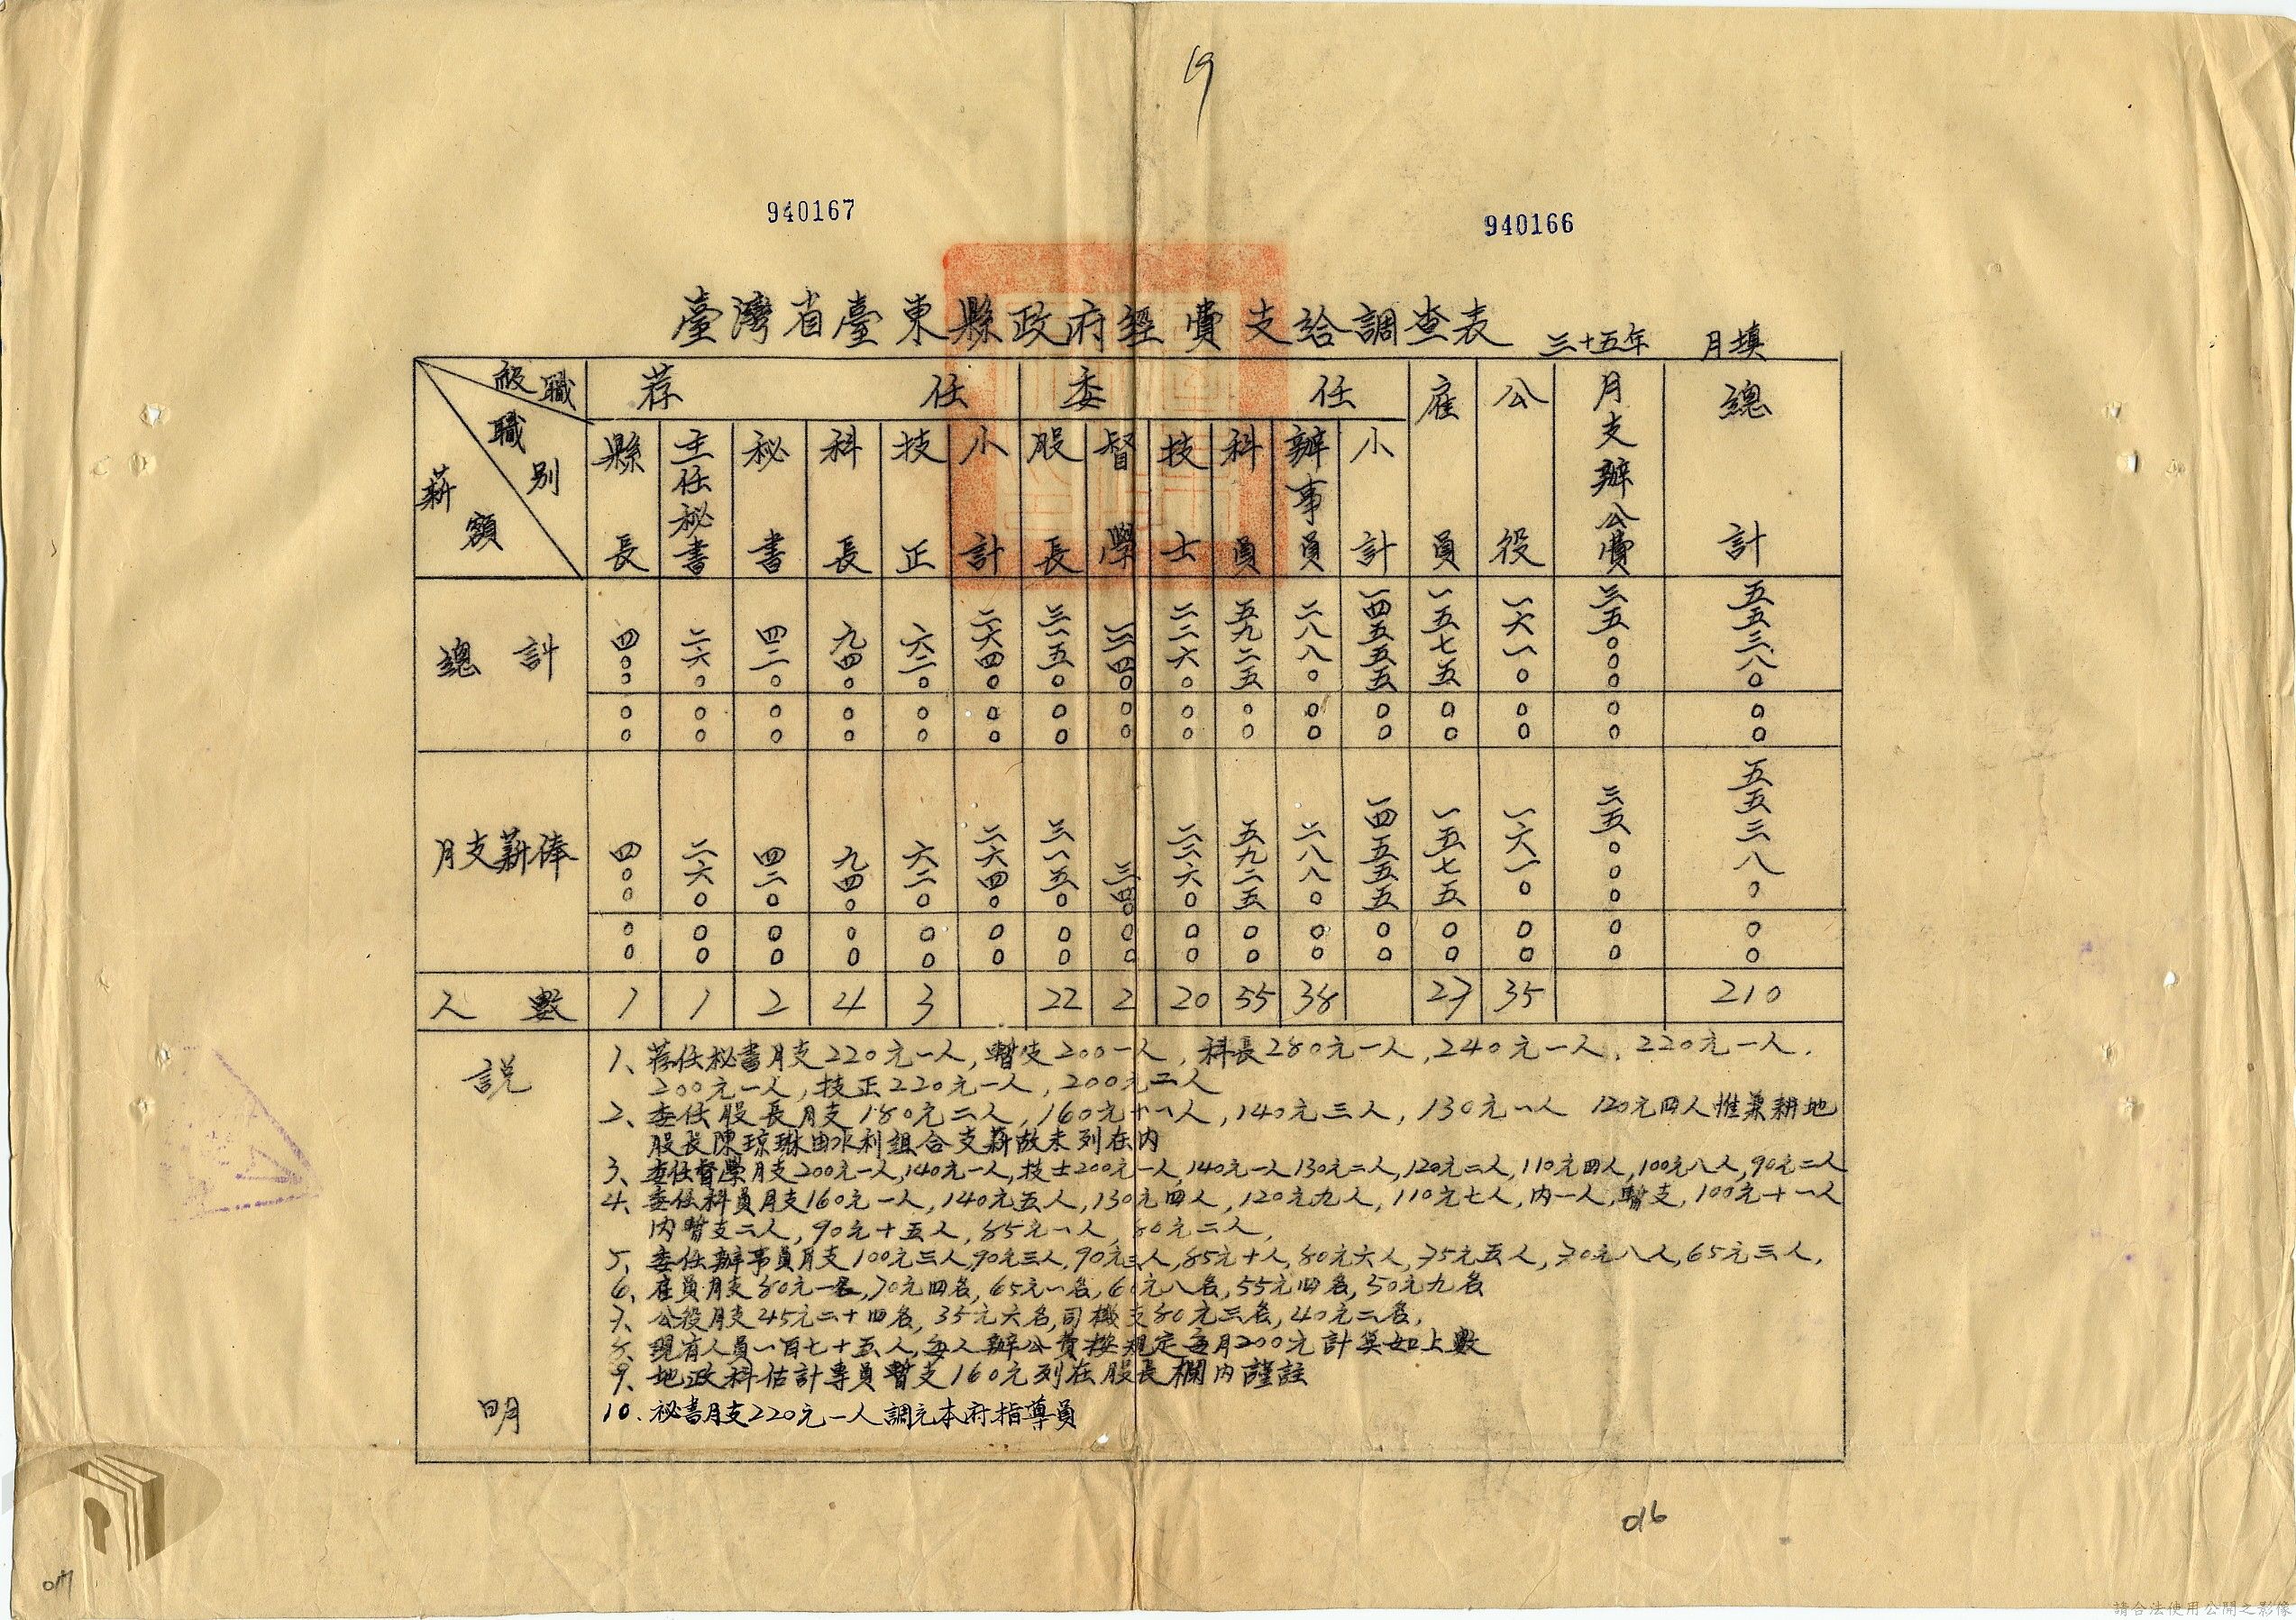 19
940167
940166
臺灣省臺東縣政府經費支給調查表 三十五年 月填
級職 職別 薪額
荐任 委任 雇員 公役 月支辦公費 總計
縣長 主任秘書 秘書 科長 技正 小計 股長 督學 技士 科員 辦事員 小計
總計 四〇〇 二六〇 四二〇 九四〇 六二〇 二六四〇 三一五〇 三四〇 二二六〇 五九二五 二八八〇 一四五五五 一五七五 一六一〇 三五〇〇〇 五五三八〇
〇〇 〇〇 〇〇 〇〇 〇〇 〇〇 〇〇 〇〇 〇〇 〇〇 〇〇 〇〇 〇〇 〇〇 〇〇 〇〇
月支薪俸 四〇〇 二六〇 四二〇 九四〇 六二〇 二六四〇 三一五〇 三四〇 二二六〇 五九二五 二八八〇 一四五五五 一五七五 一六一〇 三五〇〇〇 五五三八〇
〇〇 〇〇 〇〇 〇〇 〇〇 〇〇 〇〇 〇〇 〇〇 〇〇 〇〇 〇〇 〇〇 〇〇 〇〇 〇〇
人數 1 1 2 4 3 22 2 20 55 38 27 35 210
說明
1、荐任秘書月支220元一人,暫支200一人,科長280元一人,240元一人,220元一人.
200元一人,技正220元一人,200元二人
2、委任股長月支180元二人,160元十一人,140元三人,130元一人 120元四人惟兼耕地
股長陳琼琳由水利組合支薪故未列在內
3、委任督學月支200元一人,140元一人,技士200元一人,140元一人130元二人,120元二人,110元四人,100元八人,90元二人
4、委任科員月支160元一人,140元五人,130元四人,120元九人,110元七人,內一人,暫支,100元十一人
內暫支二人,90元十五人,85元一人,80元二人,
5、委任辦事員月支100元三人,90元三人,90元三人,85元十人,80元六人,75元五人,70元八人,65元三人,
6、雇員月支80元一名,70元四名,65元一名,60元八名,55元四名,50元九名
7、公役月支45元二十四名,35元六名,司機支80元三名,40元二名,
8、現有人員一百七十五人,每人辦公費按規定每月200元計算如上數
9、地政科估計專員暫支160元列在股長欄內謹註
10.祕書月支220元一人調充本府指導員
016
017
請合法使用公開之影像